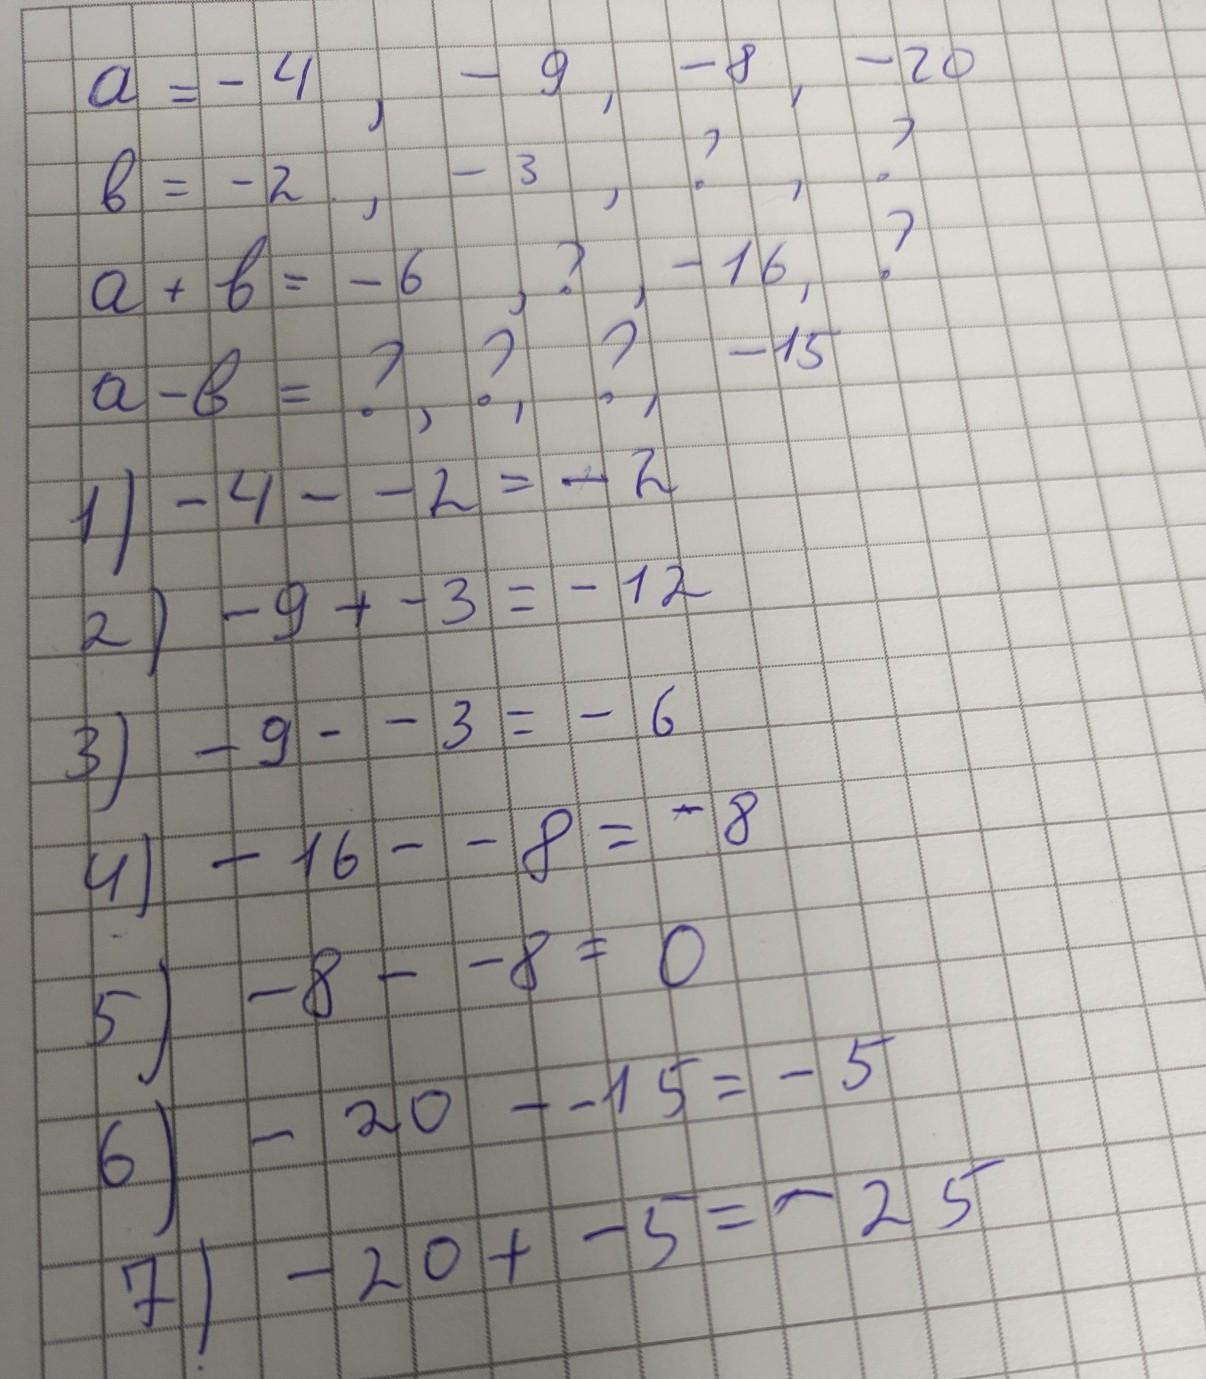 a = - 4 , - 9 , - 8 , - 20
в = - 2 , - 3 , ? , ?
a + в = - 6 , ? , - 16 , ?
a - в = ? , ? , ? , - 15
1) - 4 - - 2 = - 2
2) - 9 + - 3 = - 12
3) - 9 - - 3 = - 6
4) - 16 - - 8 = - 8
5) - 8 - - 8 = 0
6) - 20 - - 15 = - 5
7) - 20 + - 5 = - 25